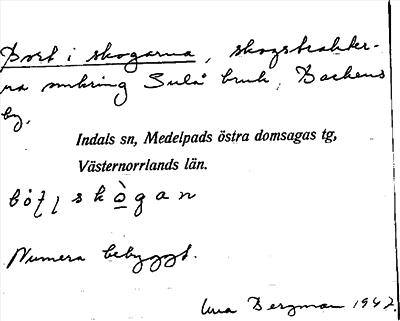 Bort i skogarna, skogstrakter-
na omkring Sulå bruk, Backens
by.
Indals sn, Medelpads östra domsagas tg,
Västernorrlands län.
skògan
Numera bebyggt.
Bergman 1947.